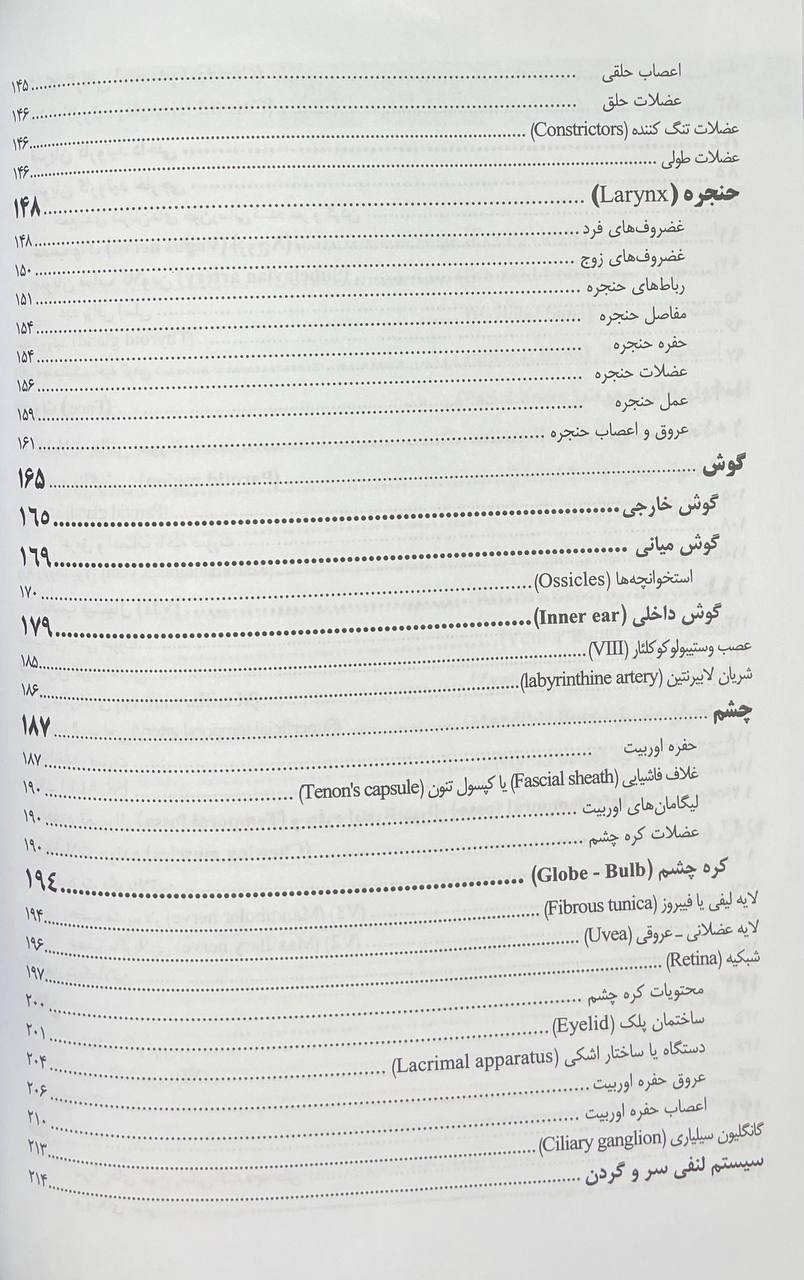 اعصاب حلقی ........ ۱۴۵
عضلات حلق ........ ۱۴۶
عضلات تنگ کننده (Constrictors) ........ ۱۴۶
عضلات طولی ........ ۱۴۶
حنجره (Larynx) ........ ۱۴۸
غضروف‌های فرد ........ ۱۴۸
غضروف‌های زوج ........ ۱۵۰
رباط‌های حنجره ........ ۱۵۱
مفاصل حنجره ........ ۱۵۴
حفره حنجره ........ ۱۵۴
عضلات حنجره ........ ۱۵۶
عمل حنجره ........ ۱۵۹
عروق و اعصاب حنجره ........ ۱۶۱
گوش ........ ۱۶۵
گوش خارجی ........ ۱۶۵
گوش میانی ........ ۱۶۹
استخوانچه‌ها (Ossicles) ........ ۱۷۰
گوش داخلی (Inner ear) ........ ۱۷۹
عصب وستیبولوکوکلئار (VIII) ........ ۱۸۵
شریان لابیرنتین (labyrinthine artery) ........ ۱۸۶
چشم ........ ۱۸۷
حفره اوربیت ........ ۱۸۷
غلاف فاشیایی (Fascial sheath) یا کپسول تنون (Tenon's capsule) ........ ۱۹۰
لیگامان‌های اوربیت ........ ۱۹۰
عضلات کره چشم ........ ۱۹۰
کره چشم (Globe - Bulb) ........ ۱۹٤
لایه لیفی یا فیبروز (Fibrous tunica) ........ ۱۹۴
لایه عضلانی – عروقی (Uvea) ........ ۱۹۶
شبکیه (Retina) ........ ۱۹۷
محتویات کره چشم ........ ۲۰۰
ساختمان پلک (Eyelid) ........ ۲۰۱
دستگاه یا ساختار اشکی (Lacrimal apparatus) ........ ۲۰۴
عروق حفره اوربیت ........ ۲۰۶
اعصاب حفره اوربیت ........ ۲۱۰
گانگلیون سیلیاری (Ciliary ganglion) ........ ۲۱۳
سیستم لنفی سر و گردن ........ ۲۱۴